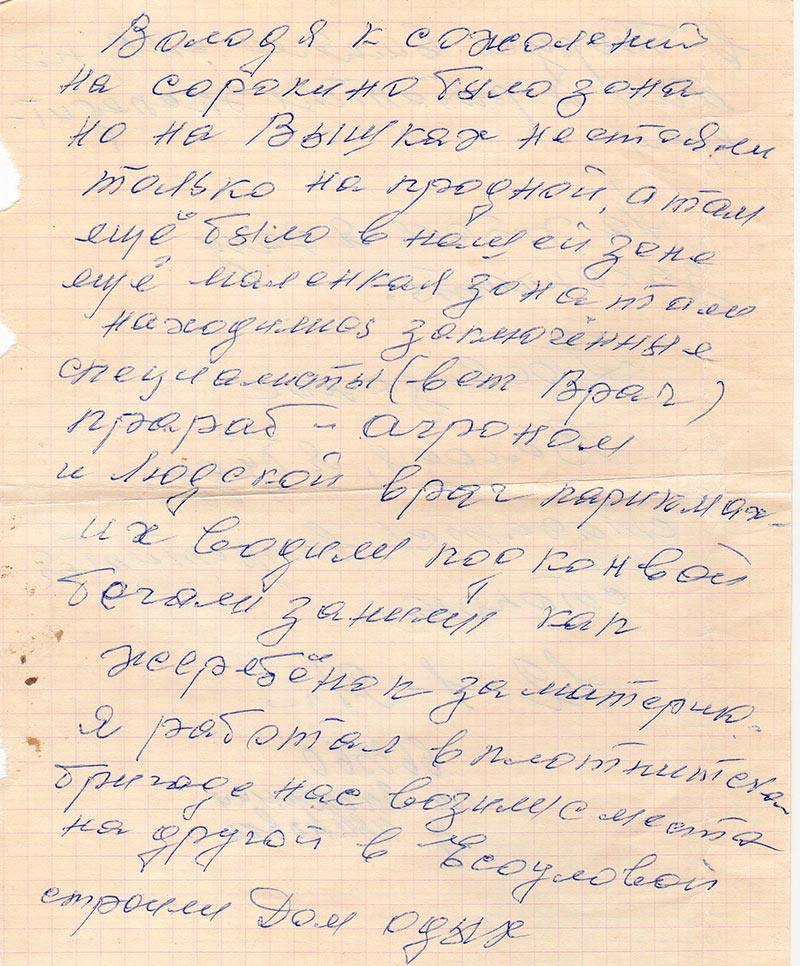 Володя к сожолений
на сорокино было зона
но на Вышках нестояли
только на продной, а там
ещё было в нашей зоне
ещё маленкая зона там
находились заключённые
специалисты (вет Врач)
прараб - агроном
и людской врач парикмах-
их водили под конвой
бегали заними как
жеребёнок заматерю.
я работал вплотнитской
бригаде нас возили с места
на другой в Есауловой
строили Дом одых